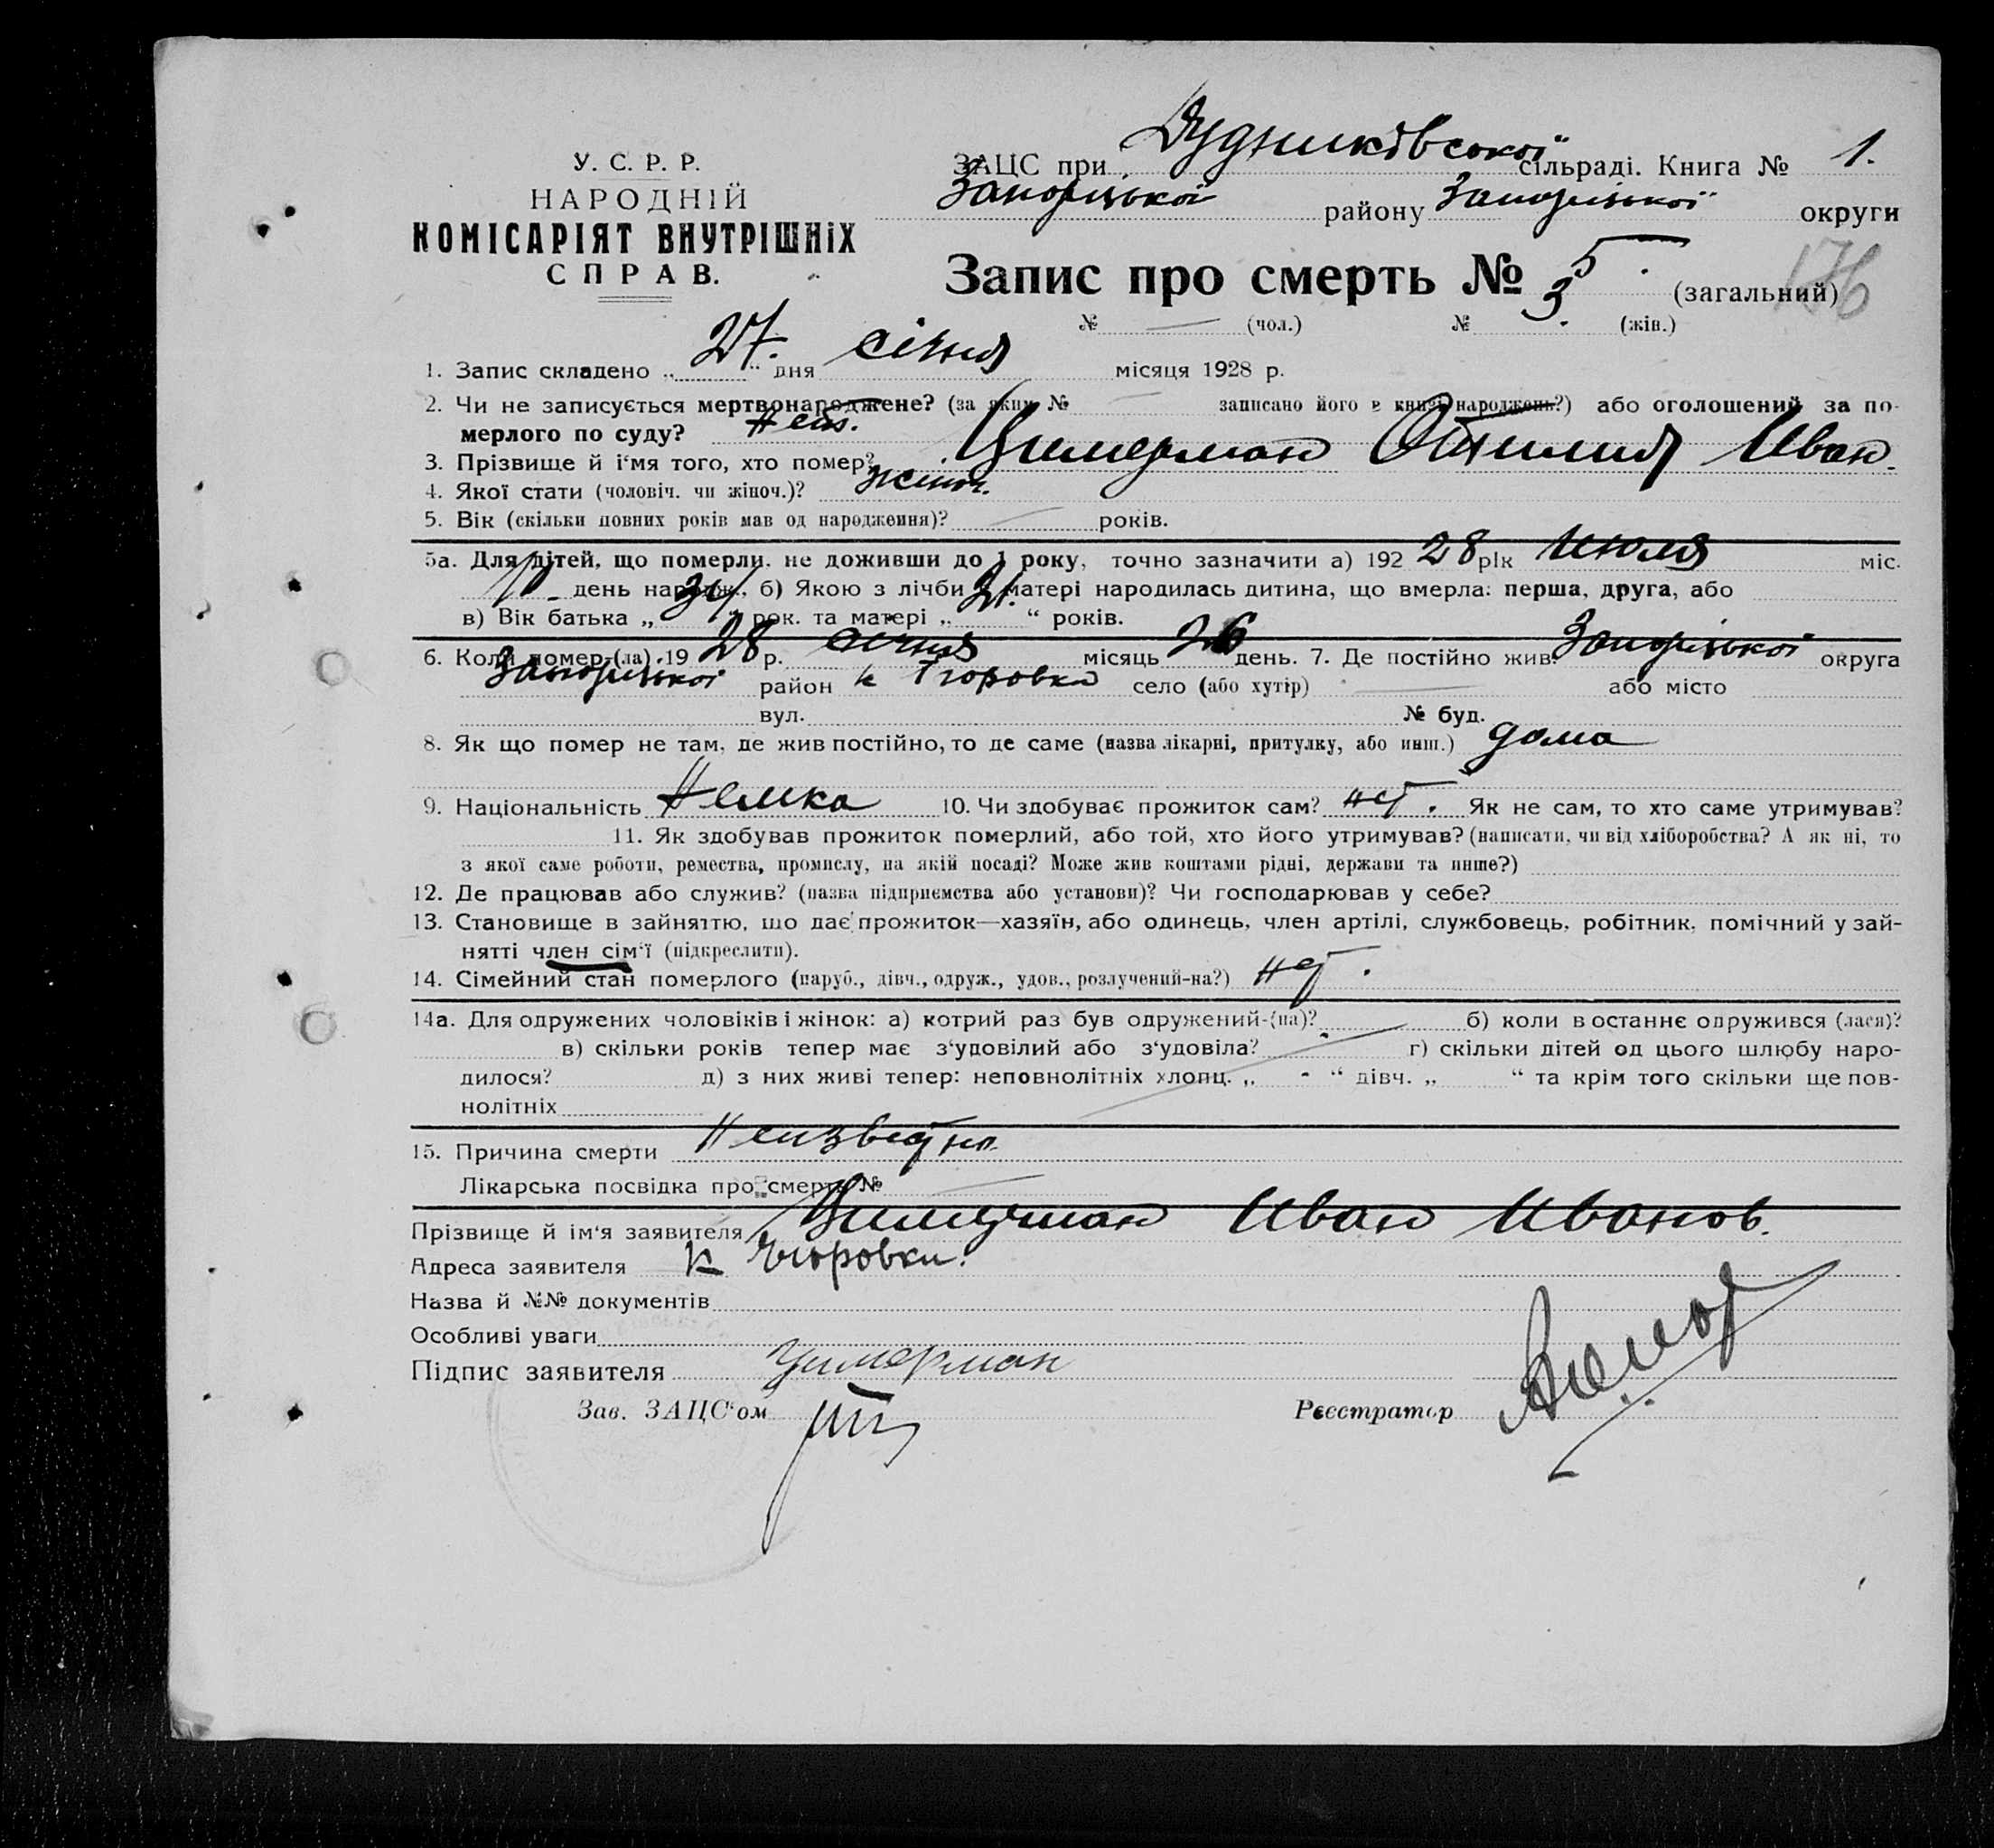 У. С. Р. Р.
НАРОДНІЙ
КОМІСАРІЯТ ВНУТРІШНІХ
СПРАВ.
ЗАЦС при Дудниківської сільраді. Книга № 1.
Запорізької району Запорізької округи
Запис про смерть № 5. (загальний) 176
№ — (чол.) № 3. (жін.)
1. Запис складено „27.“ дня січня місяця 1928 р.
2. Чи не записується мертвонароджене? (за яким № — записано його в книзі народжень?) або оголошений за по-
мерлого по суду?
3. Прізвище й і'мя того, хто помер? Цимерман Отилия Иван.
4. Якої стати (чоловіч. чи жіноч.)? жіноч.
5. Вік (скільки повних років мав од народження)? — років.
5а. Для дітей, що померли, не доживши до 1 року, точно зазначити а) 192 28 рік Июля міс.
день народж., б) Якою з лічби у матері народилась дитина, що вмерла: перша, друга, або
в) Вік батька „34“ рок. та матері „31.“ років.
6. Коли помер-(ла) 1928 р. січня місяць 26 день. 7. Де постійно жив: Запорізької округа
Запорізької район к село (або хутір) — або місто
вул. № буд.
8. Як що помер не там, де жив постійно, то де саме (назва лікарні, притулку, або инш.) дома
9. Національність Немка 10. Чи здобуває прожиток сам? нет. Як не сам, то хто саме утримував?
11. Як здобував прожиток померлий, або той, хто його утримував? (написати, чи від хліборобства? А як ні, то
з якої саме роботи, ремества, промислу, на якій посаді? Може жив коштами рідні, держави та инше?)
12. Де працював або служив? (назва підприємства або установи)? Чи господарював у себе?
13. Становище в зайняттю, що дає прожиток—хазяїн, або одинець, член артілі, службовець, робітник, помічний у зай-
нятті член сім'ї (підкреслити).
14. Сімейний стан померлого (паруб., дівч., одруж., удов., розлучений-на?) нет.
14а. Для одружених чоловіків і жінок: а) котрий раз був одружений-(на)? б) коли востаннє одружився (лася)?
в) скільки років тепер має з'удовілий або з'удовіла? г) скільки дітей од цього шлюбу наро-
дилося? д) з них живі тепер: неповнолітніх хлопц. „ - “ дівч. „ “ та крім того скільки ще пов-
нолітніх
15. Причина смерти Неизвестно.
Лікарська посвідка про смерть № —
Прізвище й ім'я заявителя Цимерман Иван Иванов.
Адреса заявителя к
Назва й №№ документів
Особливі уваги
Підпис заявителя Цимерман
Зав. ЗАЦС'ом Реєстратор